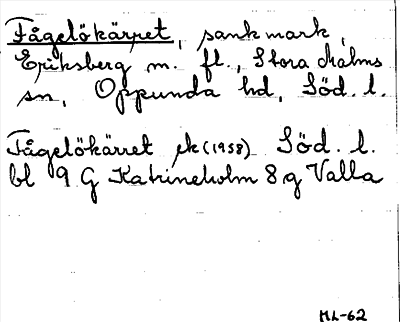 Fågelökärret, sankmark,
Eriksberg m. fl., Stora Malms
sn, Oppunda hd, Söd. l.
Fågelökärret ek (1958) Söd. l.
bl 9 G Katrineholm 8 g Valla
ML-62